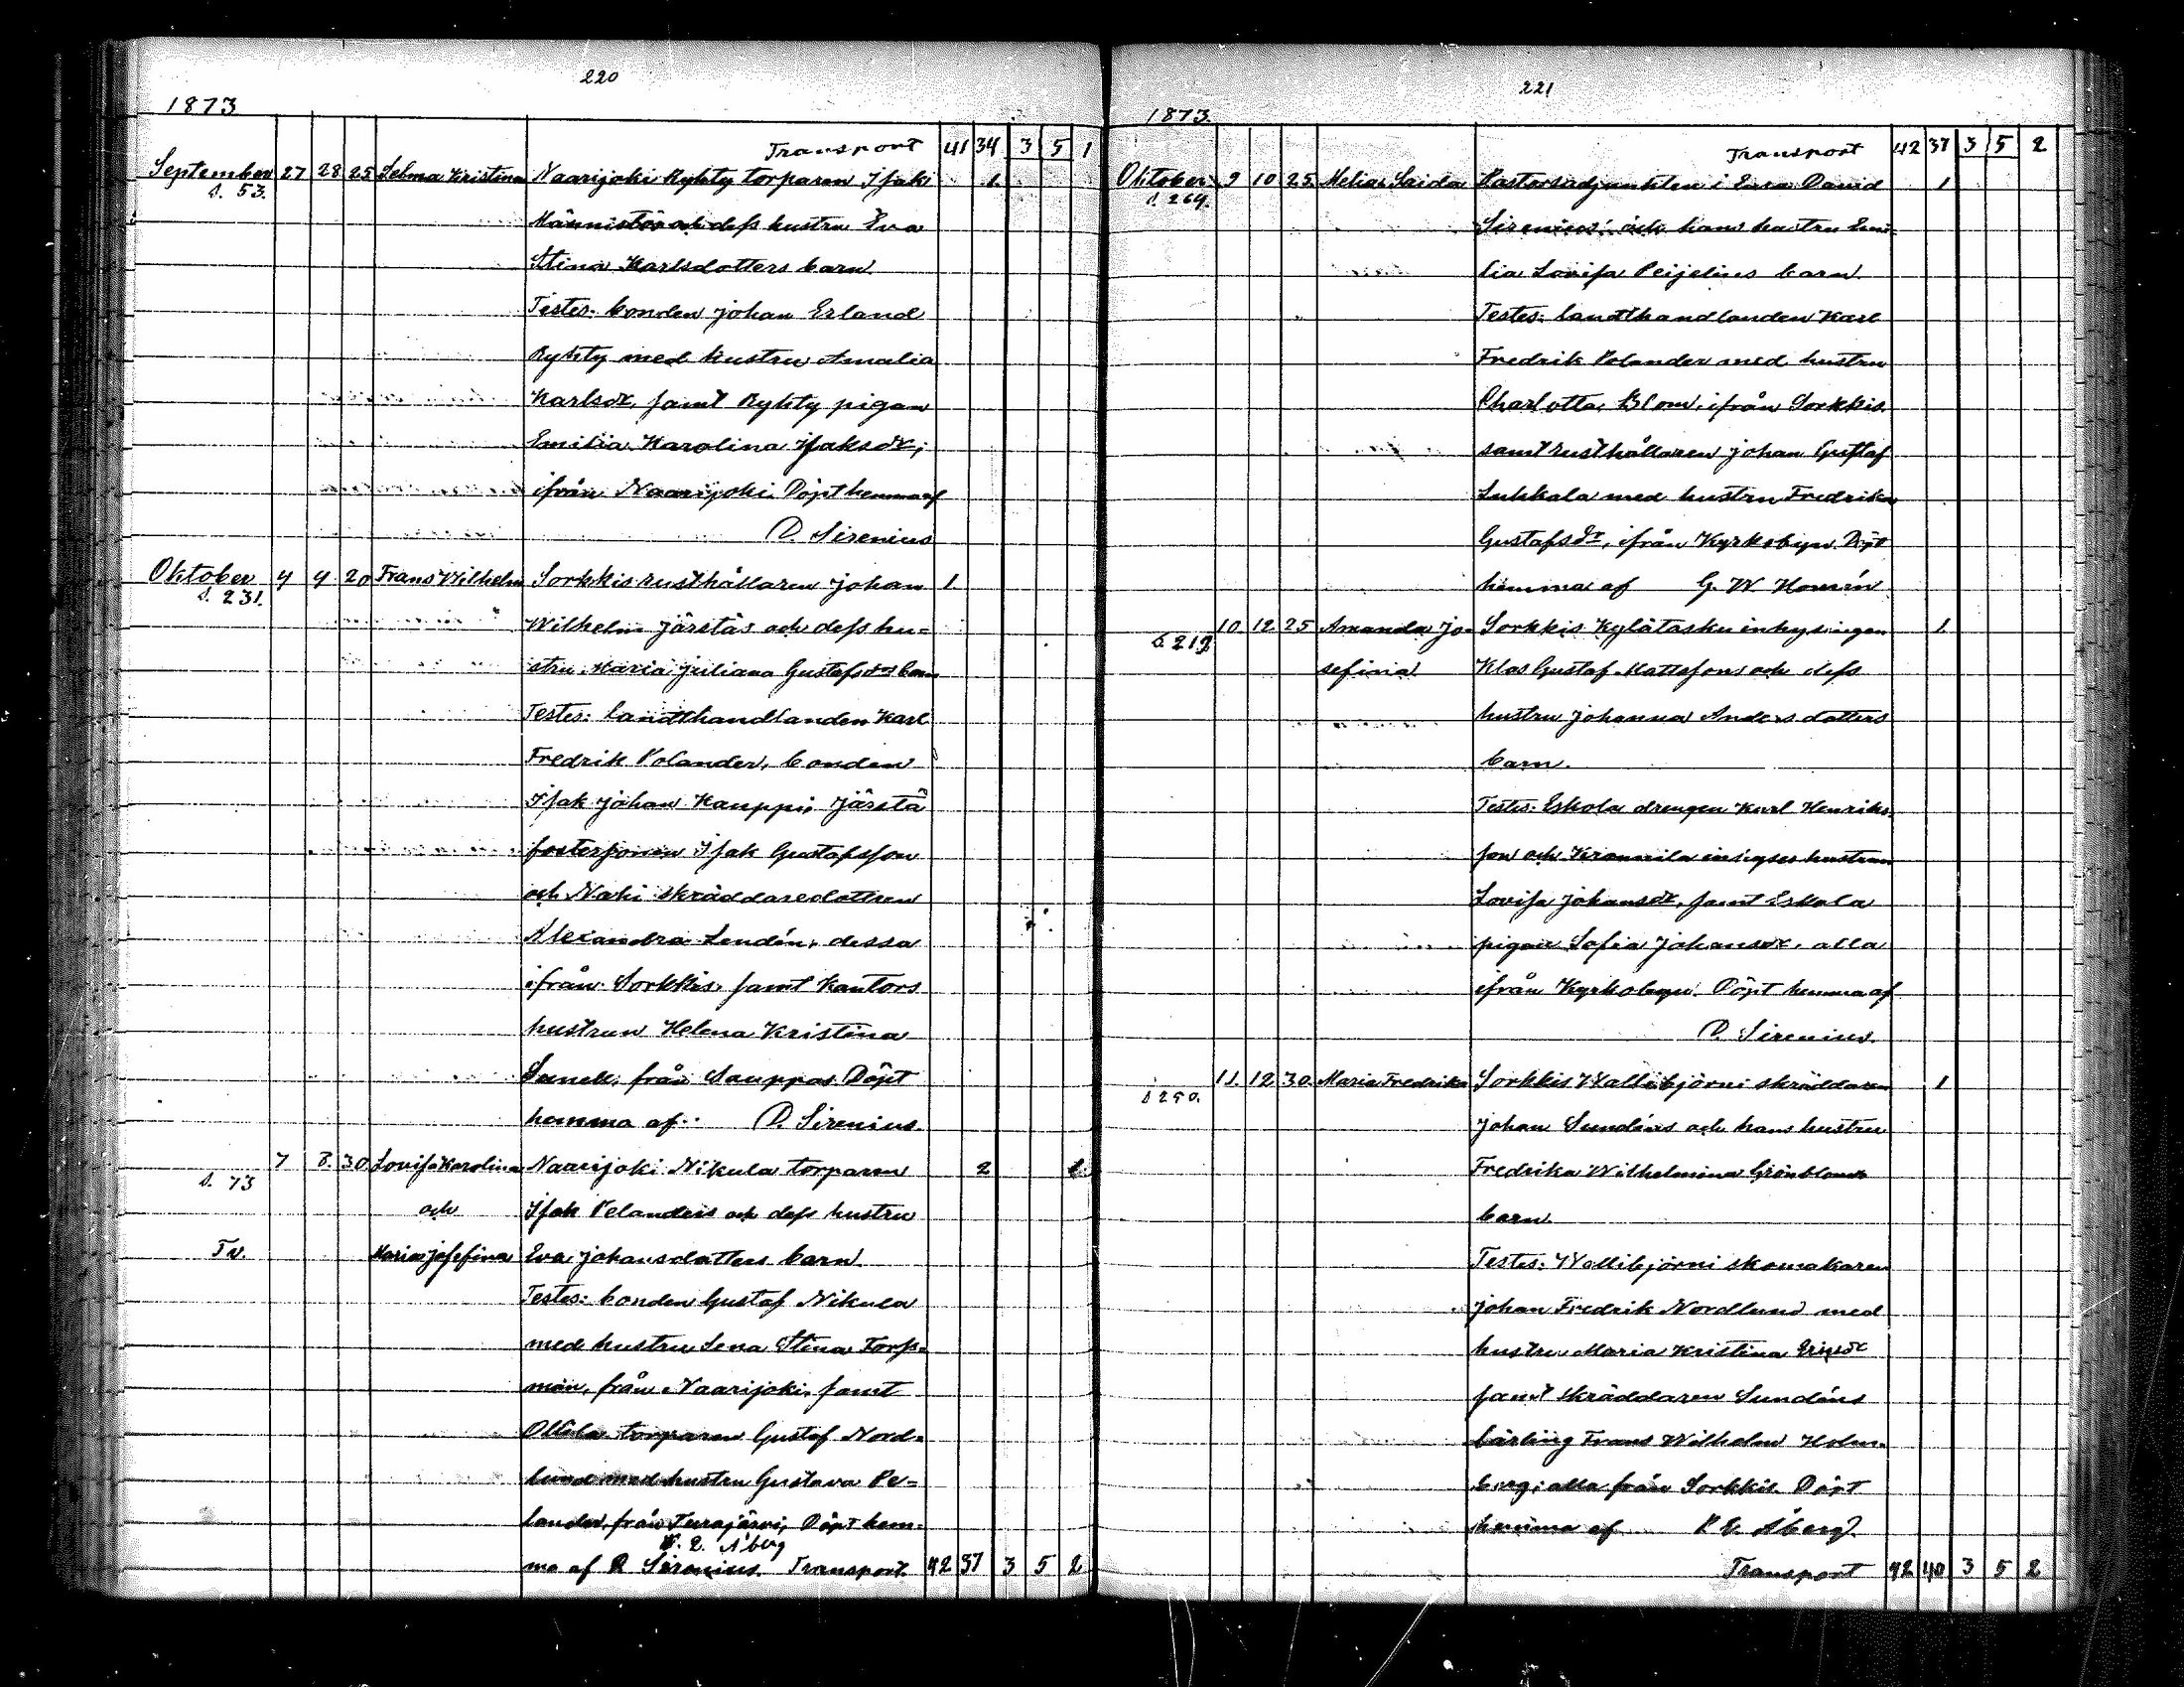 220
1873
Transport 41 34 3 5 1
September 27 28 25 Selma Kristina Naarijoki Ryhty torparen Isaki 1
S. 53. Männistös och dess hustru Eva
Stina Karlsdotters barn
Testes: bonden Johan Erland
Ryhty med hustru Amalia
Karlsdr, samt Ryhty pigan
Emilia Karolina Isaksdr,
ifrån Naarijoki. Döpt hemma af
D. Sirenius
Oktober 4 4 20 Frans Wilhelm Sorkkis rusthållaren Johan 1
S. 231. Wilhelm Järstäs och dess hu=
stru Maria Juliana Gustafsdrs barn
Testes: landthandlanden Karl
Fredrik Polander, bonden
Isak Johan Kauppi, Järstä
fostersonen Isak Gustafsson
och Naki skräddaredottren
Alexandra Lendén, dessa
ifrån Sorkkis, samt Kantors
hustrun Helena Kristina
från Sauppas. Döpt
hemma af D. Sirenius
7 8. 30 Lovisa Karolina Naarijoki Nikula torparen 2 1
S. 73 och Isak Pelanders och dess hustru
Tv. Maria Josefina Eva Johansdotters barn
Testes: bonden Gustaf Nikula
med hustru Lena Stina Fors=
man, från Naarijoki, samt
Ollila torparen Gustaf Nord=
lund med hustru Gustava Pe=
lander, från Turajärvi, Döpt hem=
P. E. Åberg
ma af D Sirenius. Transport 42 37 3 5 2
221
1873.
Transport 42 37 3 5 2
Oktober 9 10 25 Melia Saida Pastorsadjunkten i Eura David 1
S. 264. Sirenius' och hans hustru Emi
lia Lovisa Peijelius barn
Testes: landthandlanden Karl
Fredrik Polander med hustru
Charlotta Blom, ifrån Sorkkis.
samt rusthållaren Johan Gustaf
Lukkala med hustru Fredrika
Gustafsdr, ifrån Kyrkobyn. Döpt
hemma af G. W. Homén
10 12 25 Amanda Jo- Sorkkis Kylätasku inhysingen 1
S. 219 sefina Klas Gustaf Mattssons och dess
hustru Johanna Andersdotters
barn.
Testes: Eskola drengen Karl Henriks
son och Krannila inhyses hustrun
Lovisa Johansdr, samt Eskola
pigan Sofia Johansdr, alla
ifrån Kyrkobyn. Döpt hemma af
D. Sirenius.
11 12 30 Maria Fredrika Sorkkis Wallibjörni skräddaren 1
S 250. Johan Sundéns och hans hustru
Fredrika Wilhelmina Grönbloms
barn
Testes: Wallibjörni skomakaren
Johan Fredrik Nordlund med
hustru Maria Kristina Eriksdr
samt skräddaren Sundéns
lärling Frans Wilhelm Holm=
berg, alla från Sorkkis. Döpt
hemma af P. E. Åberg
Transport 42 40 3 5 2